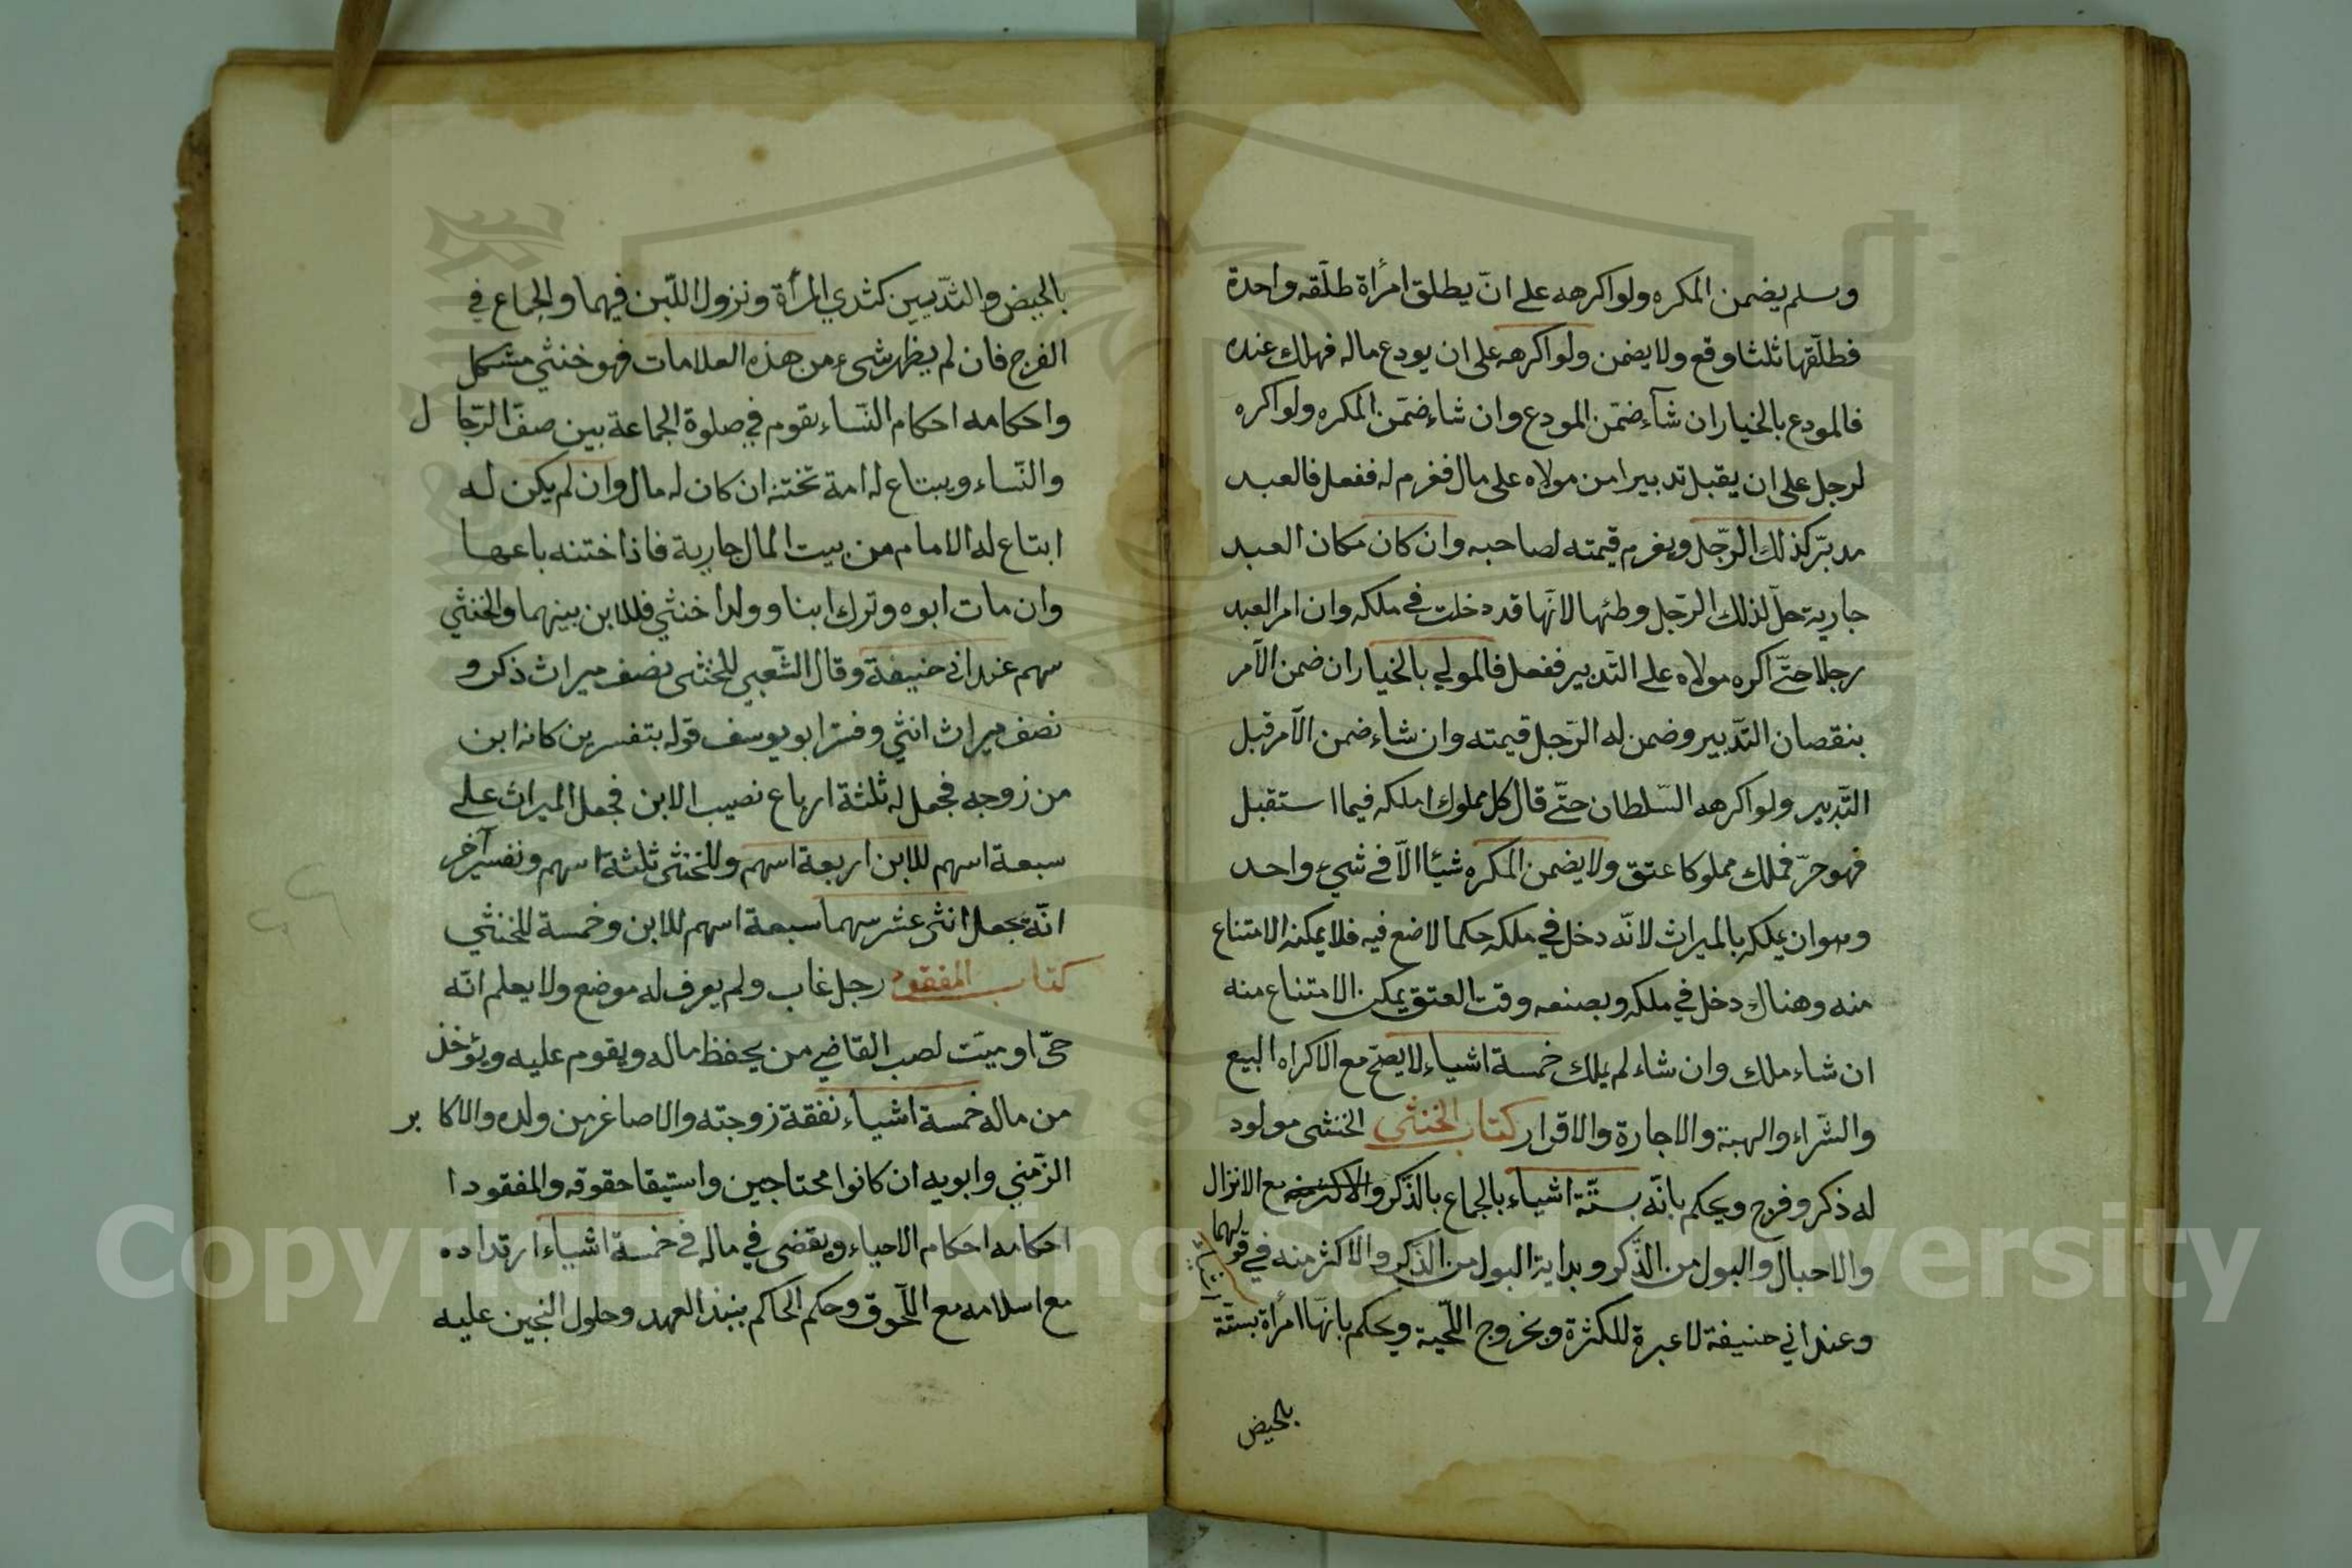 وسلم يضمن المكره ولو اكرهه على ان يطلق امرأة طلّقه واحدة
فطلّقها ثلثا وقع ولا يضمن ولو اكرهه على ان يودع ماله فهلك عنده
فالمودع بالخيار ان شاء ضمّن المودع وان شاء ضمّن المكره ولو اكره
لرجل على ان يقبل تدبيرا من مولاه على مال فغرم له ففعل فالعبد
مدبّر كذلك الرّجل ويغرم قيمته لصاحبه وان كان مكان العبد
جارية حلّ لذلك الرّجل وطئها لانّها قد دخلت في ملكه وان امر العبد
رجلا حتّى اكره مولاه على التّدبير ففعل فالمولي بالخيار ان ضمن الآمر
بنقصان التّدبير وضمن له الرّجل قيمته وان شاء ضمن الآمر قبل
التّدبير ولو اكرهه السّلطان حتّى قال كل مملوك املكه فيما استقبل
فهو حرّ فملك مملوكا عتق ولا يضمن المكره شيئا الاّ في شيء واحد
وهو ان يملكه بالميراث لانّه دخل في ملكه حكما لا ضع فيه فلا يمكنه الامتناع
منه وهناك دخل في ملكه وبصنعه وقت العتق يمكن الامتناع منه
ان شاء ملك وان شاء لم يملك خمسة اشياء لا يصحّ مع الاكراه البيع
والشّراء والهبة والاجارة والاقرار كتاب الخنثى الخنثى مولود
له ذكر وفرج ويحكم بانّه بستّة اشياء بالجماع بالذّكر والاكثر منه مع الانزال
والاحبال والبول من الذّكر وبداية البول من الذّكر والاكثر منه في قولهما
وعند ابي حنيفة لا عبرة للكثرة وبخروج اللّحية ويحكم بانّها امرأة بستّة
بالحيض
بالحيض والثّديين كثدي المرأة ونزول اللّبن فيهما والجماع في
الفرج فان لم يظهر شيء من هذه العلامات فهو خنثي مشكل
واحكامه احكام النّساء يقوم في صلوة الجماعة بين صفّ الرّجال
والنّساء ويبتاع له امة تختنه ان كان له مال وان لم يكن له
ابتاع له الامام من بيت المال جارية فاذا ختنه باعها
وان مات ابوه وترك ابنا وولدا خنثي فللابن بينهما وللخنثي
سهم عند ابي حنيفة وقال الشّعبي للخنثى نصف ميراث ذكر و
نصف ميراث انثي وفسّر ابو يوسف قوله بتفسرين كانه ابن
من زوجه فجعل له ثلثة ارباع نصيب الابن فجعل الميراث على
سبعة اسهم للابن اربعة اسهم وللخنثى ثلثة اسهم ونفسير آخر
انّه يجعل اثنى عشر سهما سبعة اسهم للابن وخمسة للخنثي
كتاب المفقود رجل غاب ولم يعرف له موضع ولا يعلم انّه
حيّ او ميّت نصب القاضي من يحفظ ماله ويقوم عليه ويؤخذ
من ماله خمسة اشياء نفقة زوجته والاصاغر من ولده والاكابر
الزّمني وابويه ان كانوا محتاجين واستيقا حقوقه والمفقود ا
احكامه احكام الاحياء ويقضى في ماله في خمسة اشياء ارتداده
مع اسلامه مع اللّحوق وحكم الحاكم بنبذ العهد وحلول النجين عليه
Copyright © King Saud University